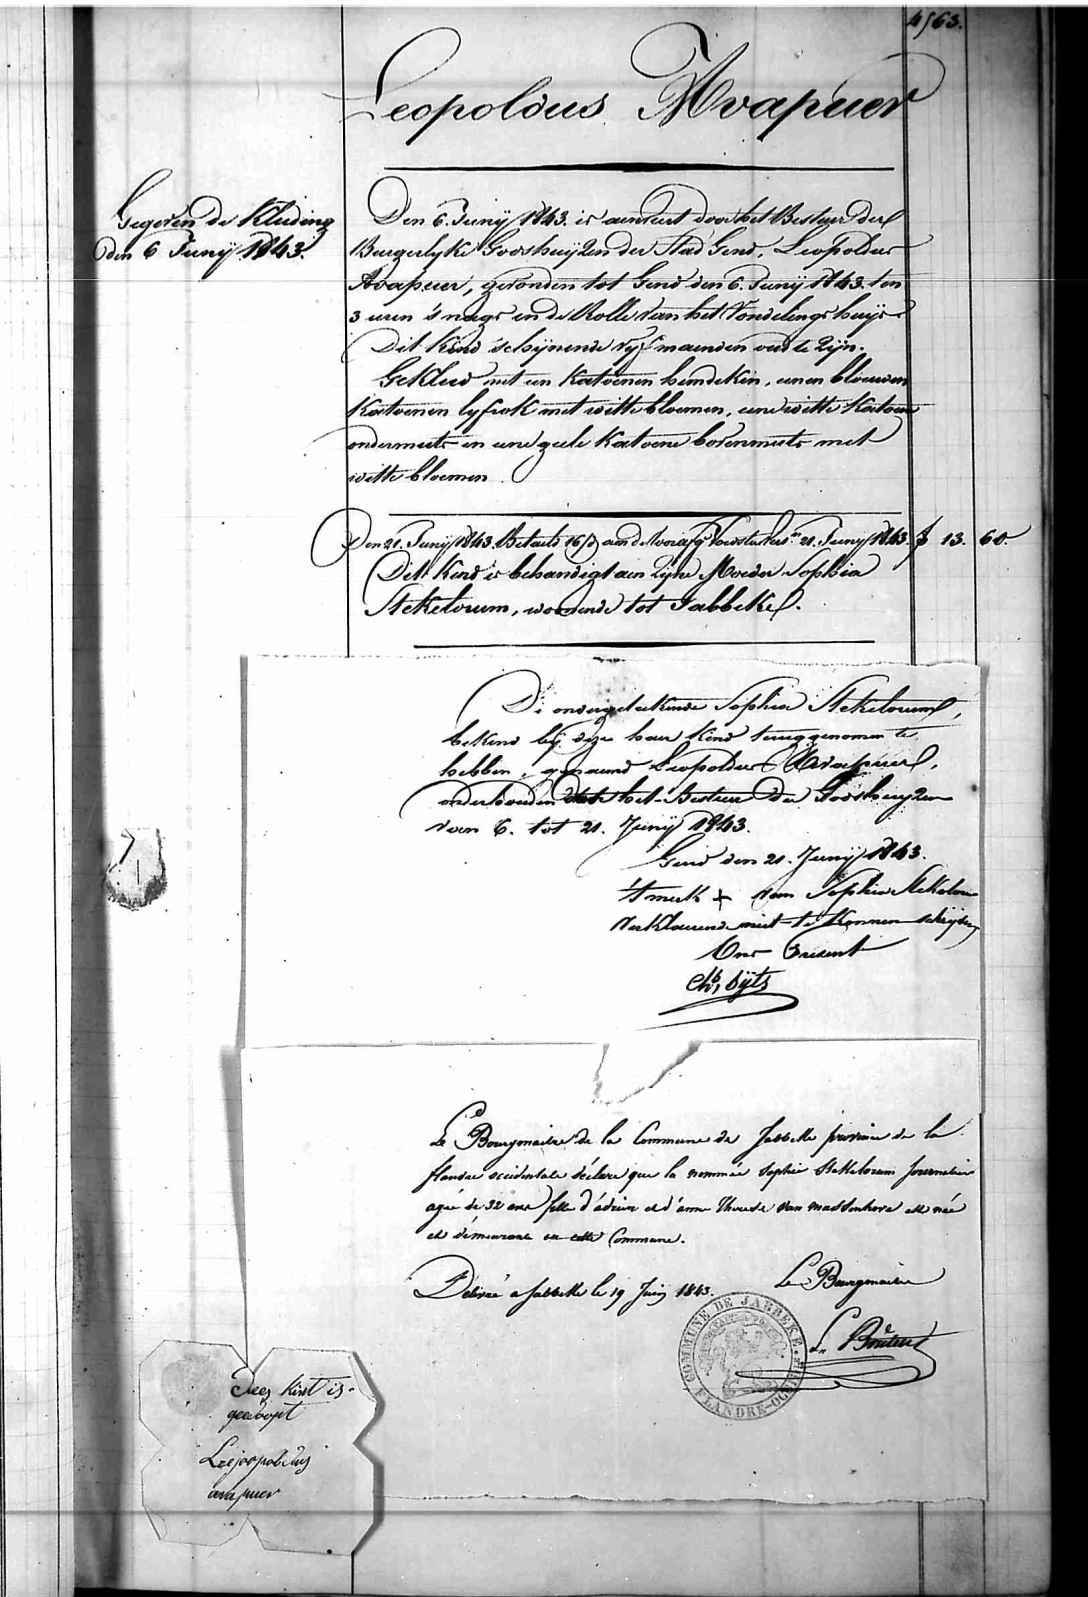 4563.
Leopoldus Avapuer
Gegeven de Kleding
den 6 Junij 1843.
Den 6. Junij 1843. is aenveert door het Bestier der
Burgerlyke Godshuijzen der Stad Gend, Leopoldus
Avapuer, gevonden tot Gend den 6. Junij 1843. ten
3 uren 's nags in de Rolle van het Vondelingshuijs
Dit Kind schijnende vyf maenden oud te zijn.
Gekleed met een Katoenen hemdeken, eenen blouwen
Katoenen lyfrok met witte bloemen, eene witte Katoene
ondermuts en eene geele Katoene bovenmuts met
witte bloemen
Den 21. Junij 1843. Betaelt 16/ aen de voorsterkers 21. Junij 1843 f 13. 60.
Dit Kind is behandigt aen zijne Moeder Sophia
Stekelorum, woonende tot Jabbeke.
De ondergeteekende Sophia Stekelorum,
bekend bij deze haer Kind teruggenomen te
hebben, genaemd Leopoldus Avapuer,
onderhouden door het Bestier der Godshuyzen
van 6. tot 21. Junij 1843.
Gend den 21. Junij 1843.
't merk + van Sophia Stekelorum
verklaerende niet te konnen schrijven
Ons Present
Ch. Dyts
Le Bourgmaitre de la Commune de Jabbeke province de la
flandre occidentale déclare que la nommée Sophie Stekelorum Journaliere
agée de 32 ans fille d'adrien et d'anne Therese van Massenhove est née
et démeurant en cette Commune.
Délivré a Jabbeke le 19 Juin 1843.
Le Bourgmaitre
COMMUNE DE JABBEKE
FLANDRE-OCCID
Deez kint is
gedoopt
Leejoopoldus
avapuer